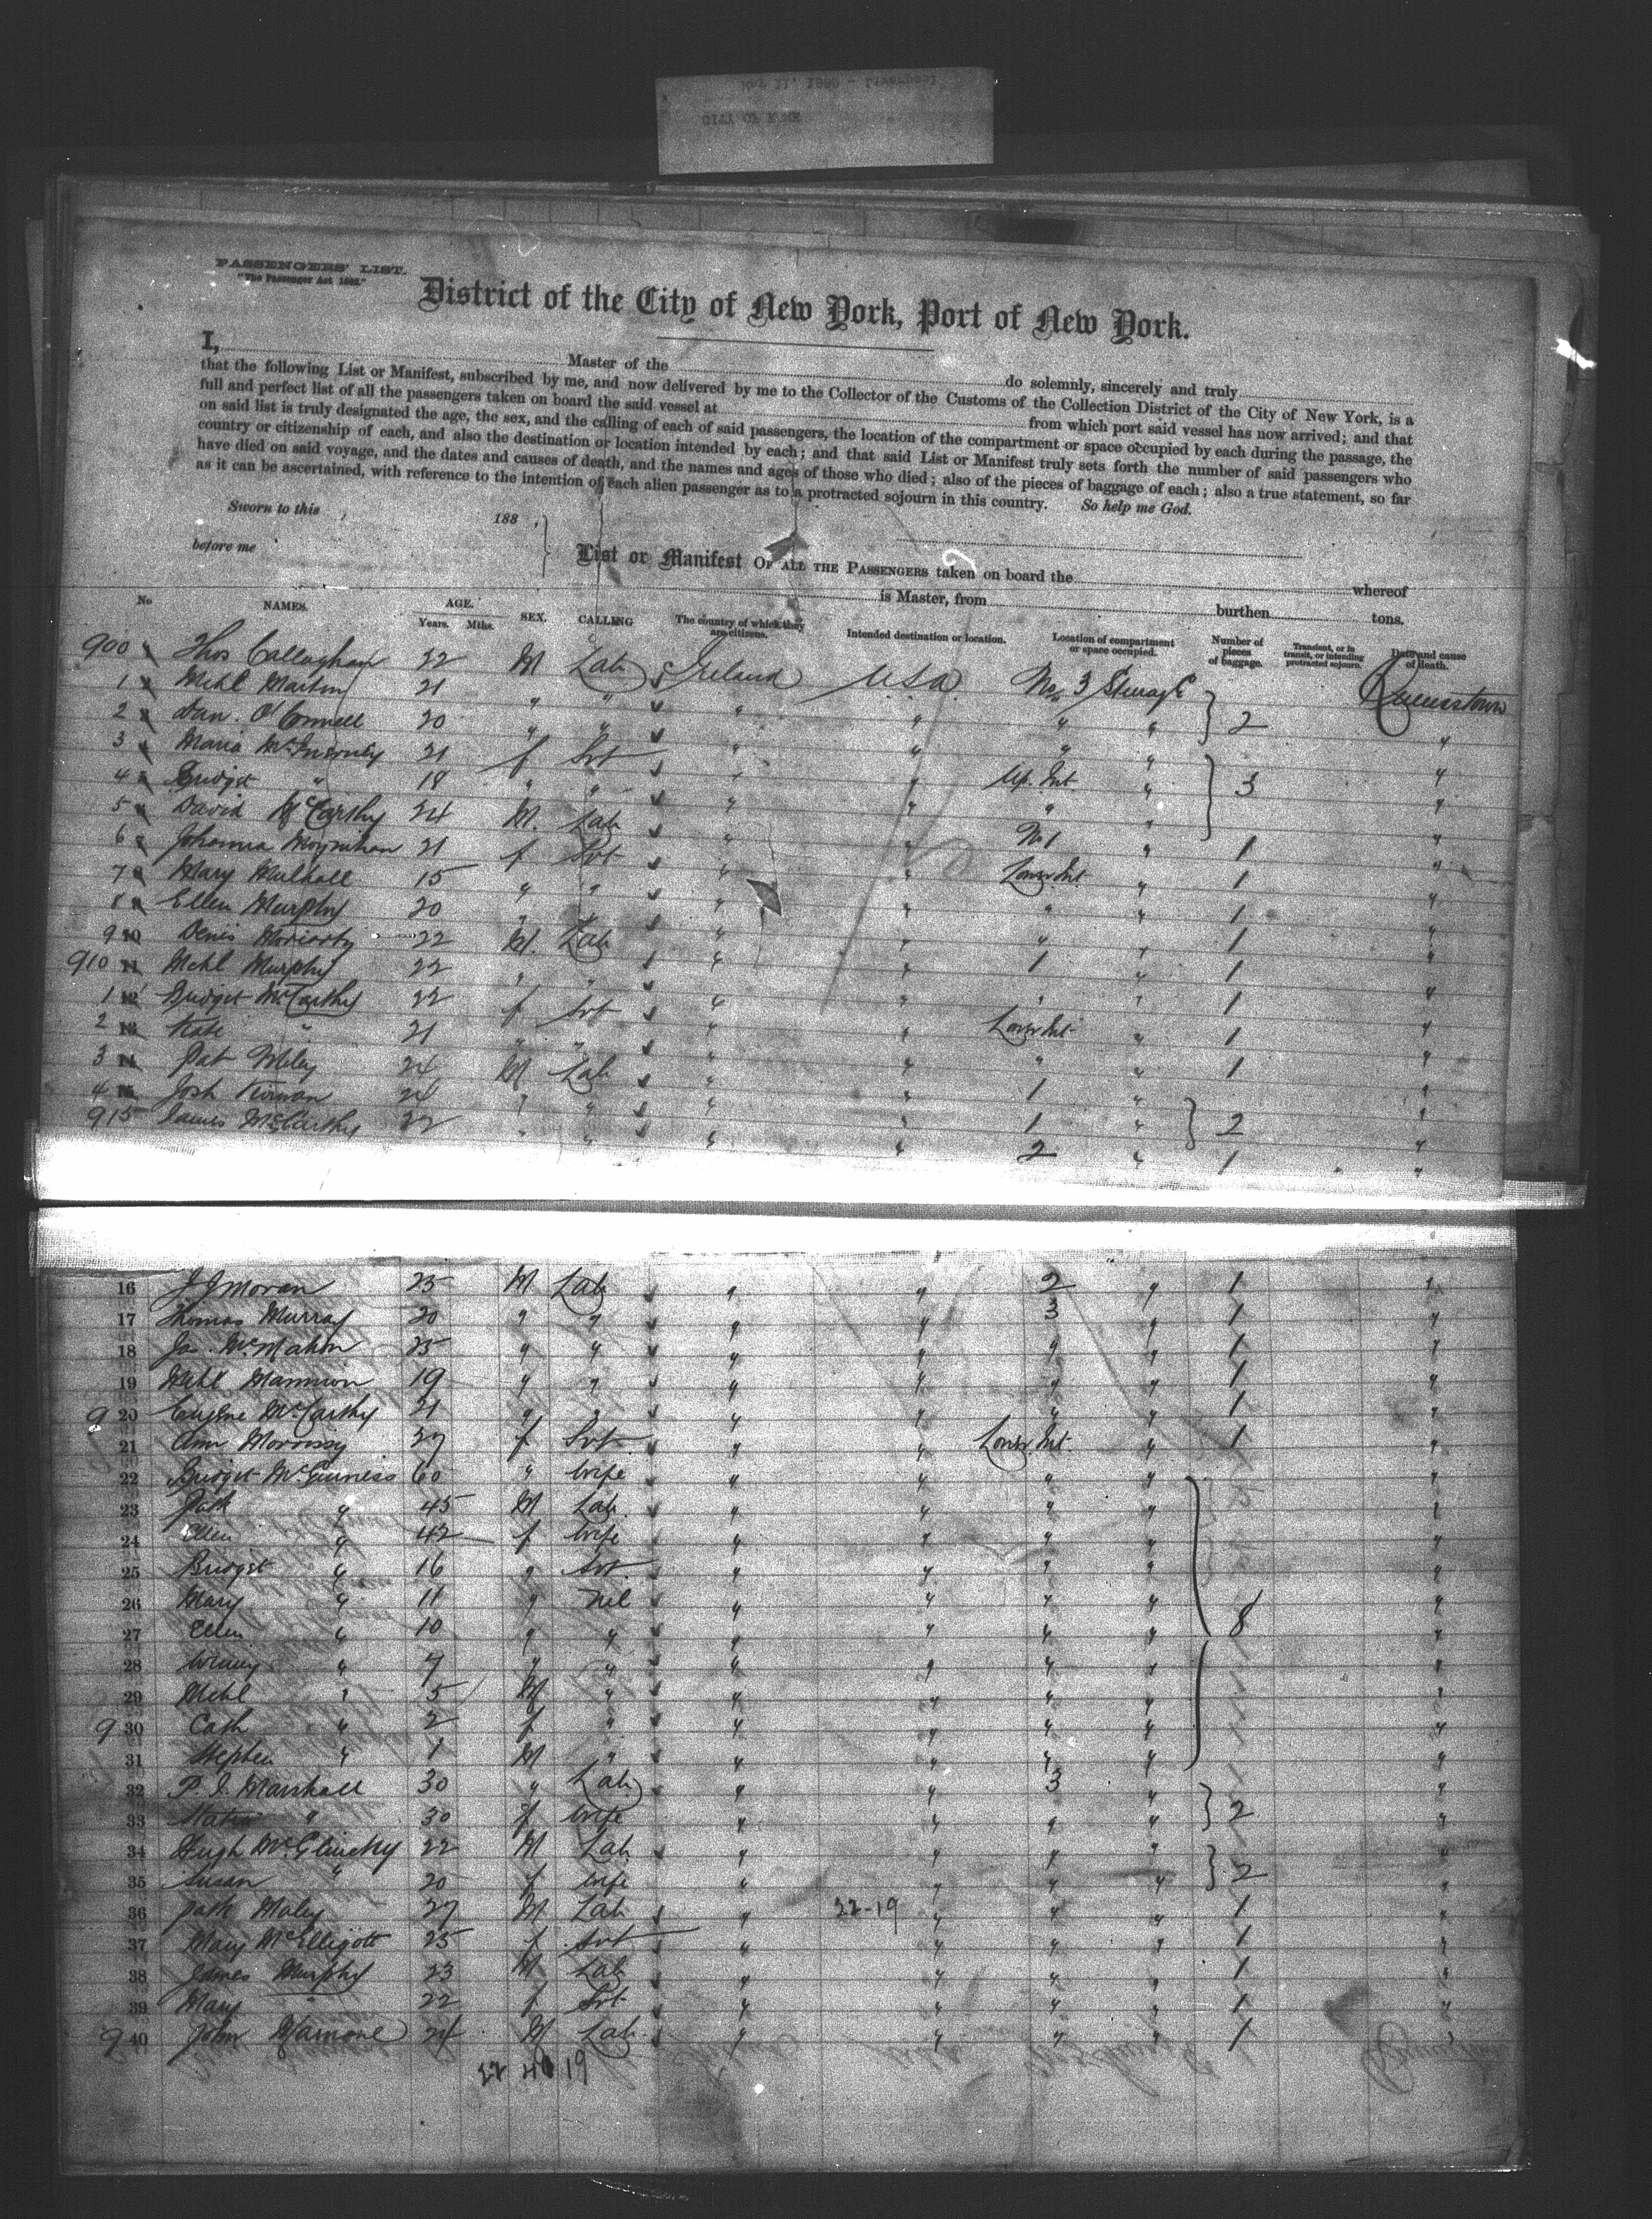 CITY OF ROME
PASSENGERS' LIST.
"The Passenger Act 1882."
District of the City of New York, Port of New York.
I, Master of the do solemnly, sincerely and truly
that the following List or Manifest, subscribed by me, and now delivered by me to the Collector of the Customs of the Collection District of the City of New York, is a
full and perfect list of all the passengers taken on board the said vessel at from which port said vessel has now arrived; and that
on said list is truly designated the age, the sex, and the calling of each of said passengers, the location of the compartment or space occupied by each during the passage, the
country or citizenship of each, and also the destination or location intended by each; and that said List or Manifest truly sets forth the number of said passengers who
have died on said voyage, and the dates and causes of death, and the names and ages of those who died; also of the pieces of baggage of each; also a true statement, so far
as it can be ascertained, with reference to the intention of each alien passenger as to a protracted sojourn in this country. So help me God.
Sworn to this 188 ,
before me
List or Manifest OF ALL THE PASSENGERS taken on board the whereof
is Master, from burthen tons.
No NAMES. AGE. Years. Mths. SEX. CALLING The country of which they are citizens. Intended destination or location. Location of compartment or space occupied. Number of pieces of baggage. Transient, or in transit, or intending protracted sojourn. Date and cause of death.
900 Thos Callaghan 22 M Lab Ireland USA No 3 Steerage Queenstown
1 Mchl Martin 21 " " " " " " 2 "
2 Dan. O'Connell 20 " " " " " " "
3 Maria 21 f Srt " " Up. Int " 3 "
4 Bridget " 18 " " " " " " "
5 David McCarthy 24 M. Lab " " No 1 " 1 "
6 Johanna Moynihan 21 f Srt " " Lower Int " 1 "
7 Mary Mulhall 15 " " " " " " 1 "
8 Ellen Murphy 20 " " " " " " 1 "
9 Denis Moriarty 22 M. Lab " " 1 " 1 "
910 Mchl Murphy 22 " " " " " " 1 "
1 Bridget McCarthy 22 f Srt " " Lower Int " 1 "
2 Kate " 21 " " " " " " 1 "
3 Pat 24 M Lab " " 1 " "
4 Josh Kirwan 24 " " " " 1 " 2 "
915 James McCarthy 22 " " " " 2 " 1 "
16 J J Moran 25 M Lab " " 2 " 1 "
17 Thomas Murray 20 " " " " 3 " 1 "
18 Ja. McMahon 25 " " " " " " 1 "
19 Mchl Mannion 19 " " " " " " 1 "
9 20 Eugene McCarthy 21 " " " " " " 1 "
21 Ann Morrissy 27 f Srt " " Lower Int " 1 "
22 Bridget McGuiness 60 " Wife " " " " "
23 Patk " 45 M Lab " " " " "
24 Ellen " 42 f Wife " " " " "
25 Bridget " 16 " Srt. " " " " "
26 Mary " 11 " Nil " " " " "
27 Ellen " 10 " " " " " " 8 "
28 Winny " 7 " " " " " " "
29 Mchl " 5 M " " " " " "
9 30 Cath " 2 f " " " " " "
31 Stephen " 1 M " " " " " "
32 P. J. Marshall 30 " Lab " " 3 " 2 "
33 " 30 f Wife " " " " "
34 Hugh McGlinchy 22 M Lab " " " " 2 "
35 Susan " 20 f Wife " " " " "
36 Patk Maley 27 M Lab " 22-19 " " " 1 "
37 Mary McElligott 25 f Srt " " " " 1 "
38 James Murphy 23 M Lab " " " " 1 "
39 Mary " 22 f Srt " " " " 1 "
9 40 John 24 M Lab " " " " 1 "
22 40 19